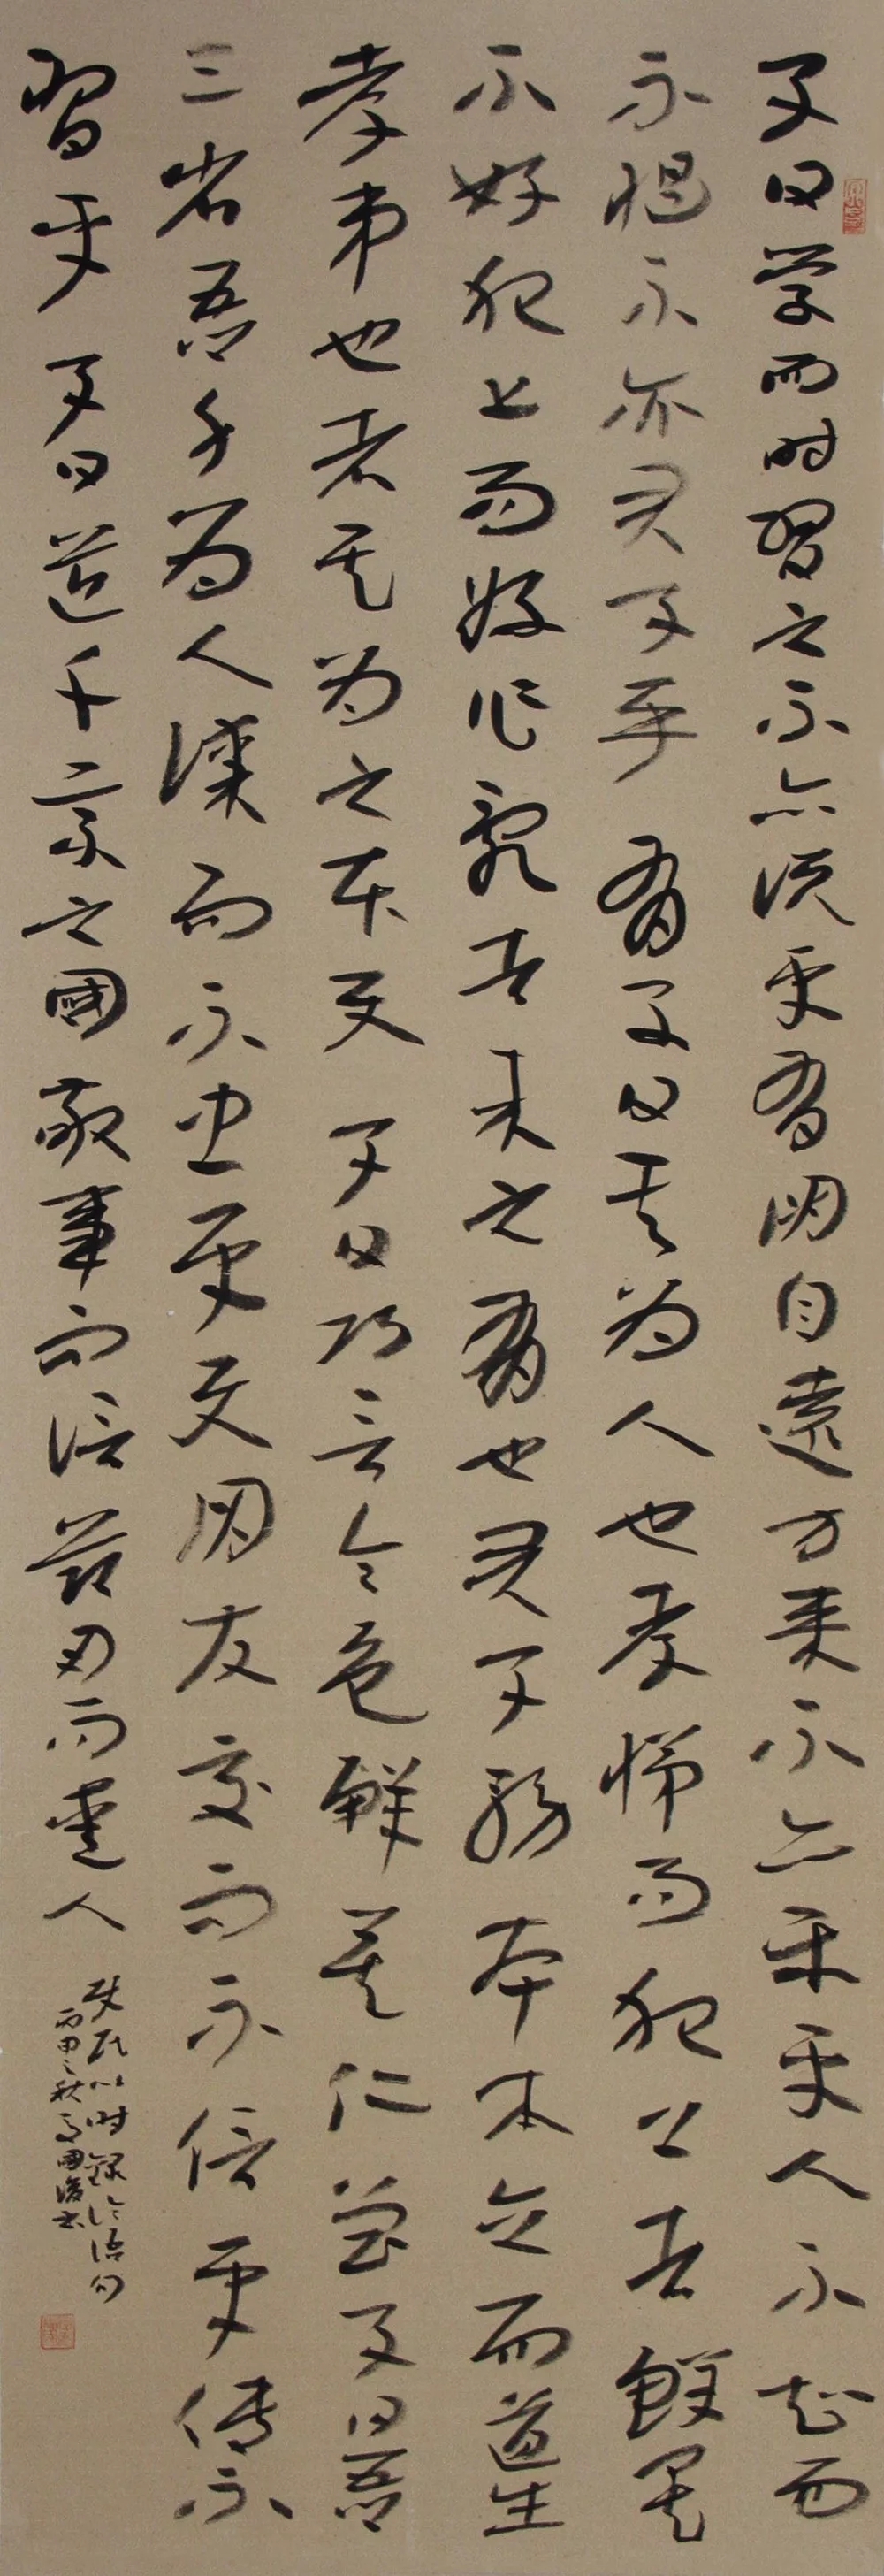 子曰學而時習之不亦說乎有朋自遠方來不亦樂乎人不知而
不愠不亦君子乎 有子曰其為人也孝悌而犯上者鮮矣
不好犯上而好作亂者未之有也君子務本本立而道生
孝弟也者其為之本与 子曰巧言令色鮮矣仁曾子曰吾
三省吾身為人謀而不忠乎与朋友交而不信乎傳不
習乎 子曰道千乘之國敬事而信節用而愛人
使民以時錄論語句
丙申之秋